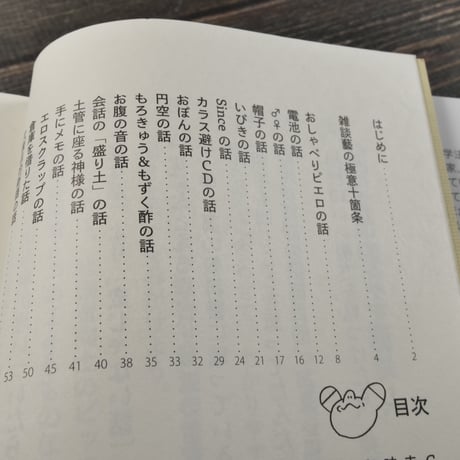 目次
はじめに 2
雑談藝の極意十箇条 4
おしゃべりピエロの話 8
電池の話 12
♂♀の話 16
帽子の話 17
いびきの話 21
Sinceの話 24
カラス避けCDの話 29
おぼんの話 32
円空の話 33
もろきゅう＆もずく酢の話 35
お腹の音の話 38
会話の「盛り土」の話 40
土管に座る神様の話 41
手にメモの話 45
エロスクラップの話 50
を借りた話 53